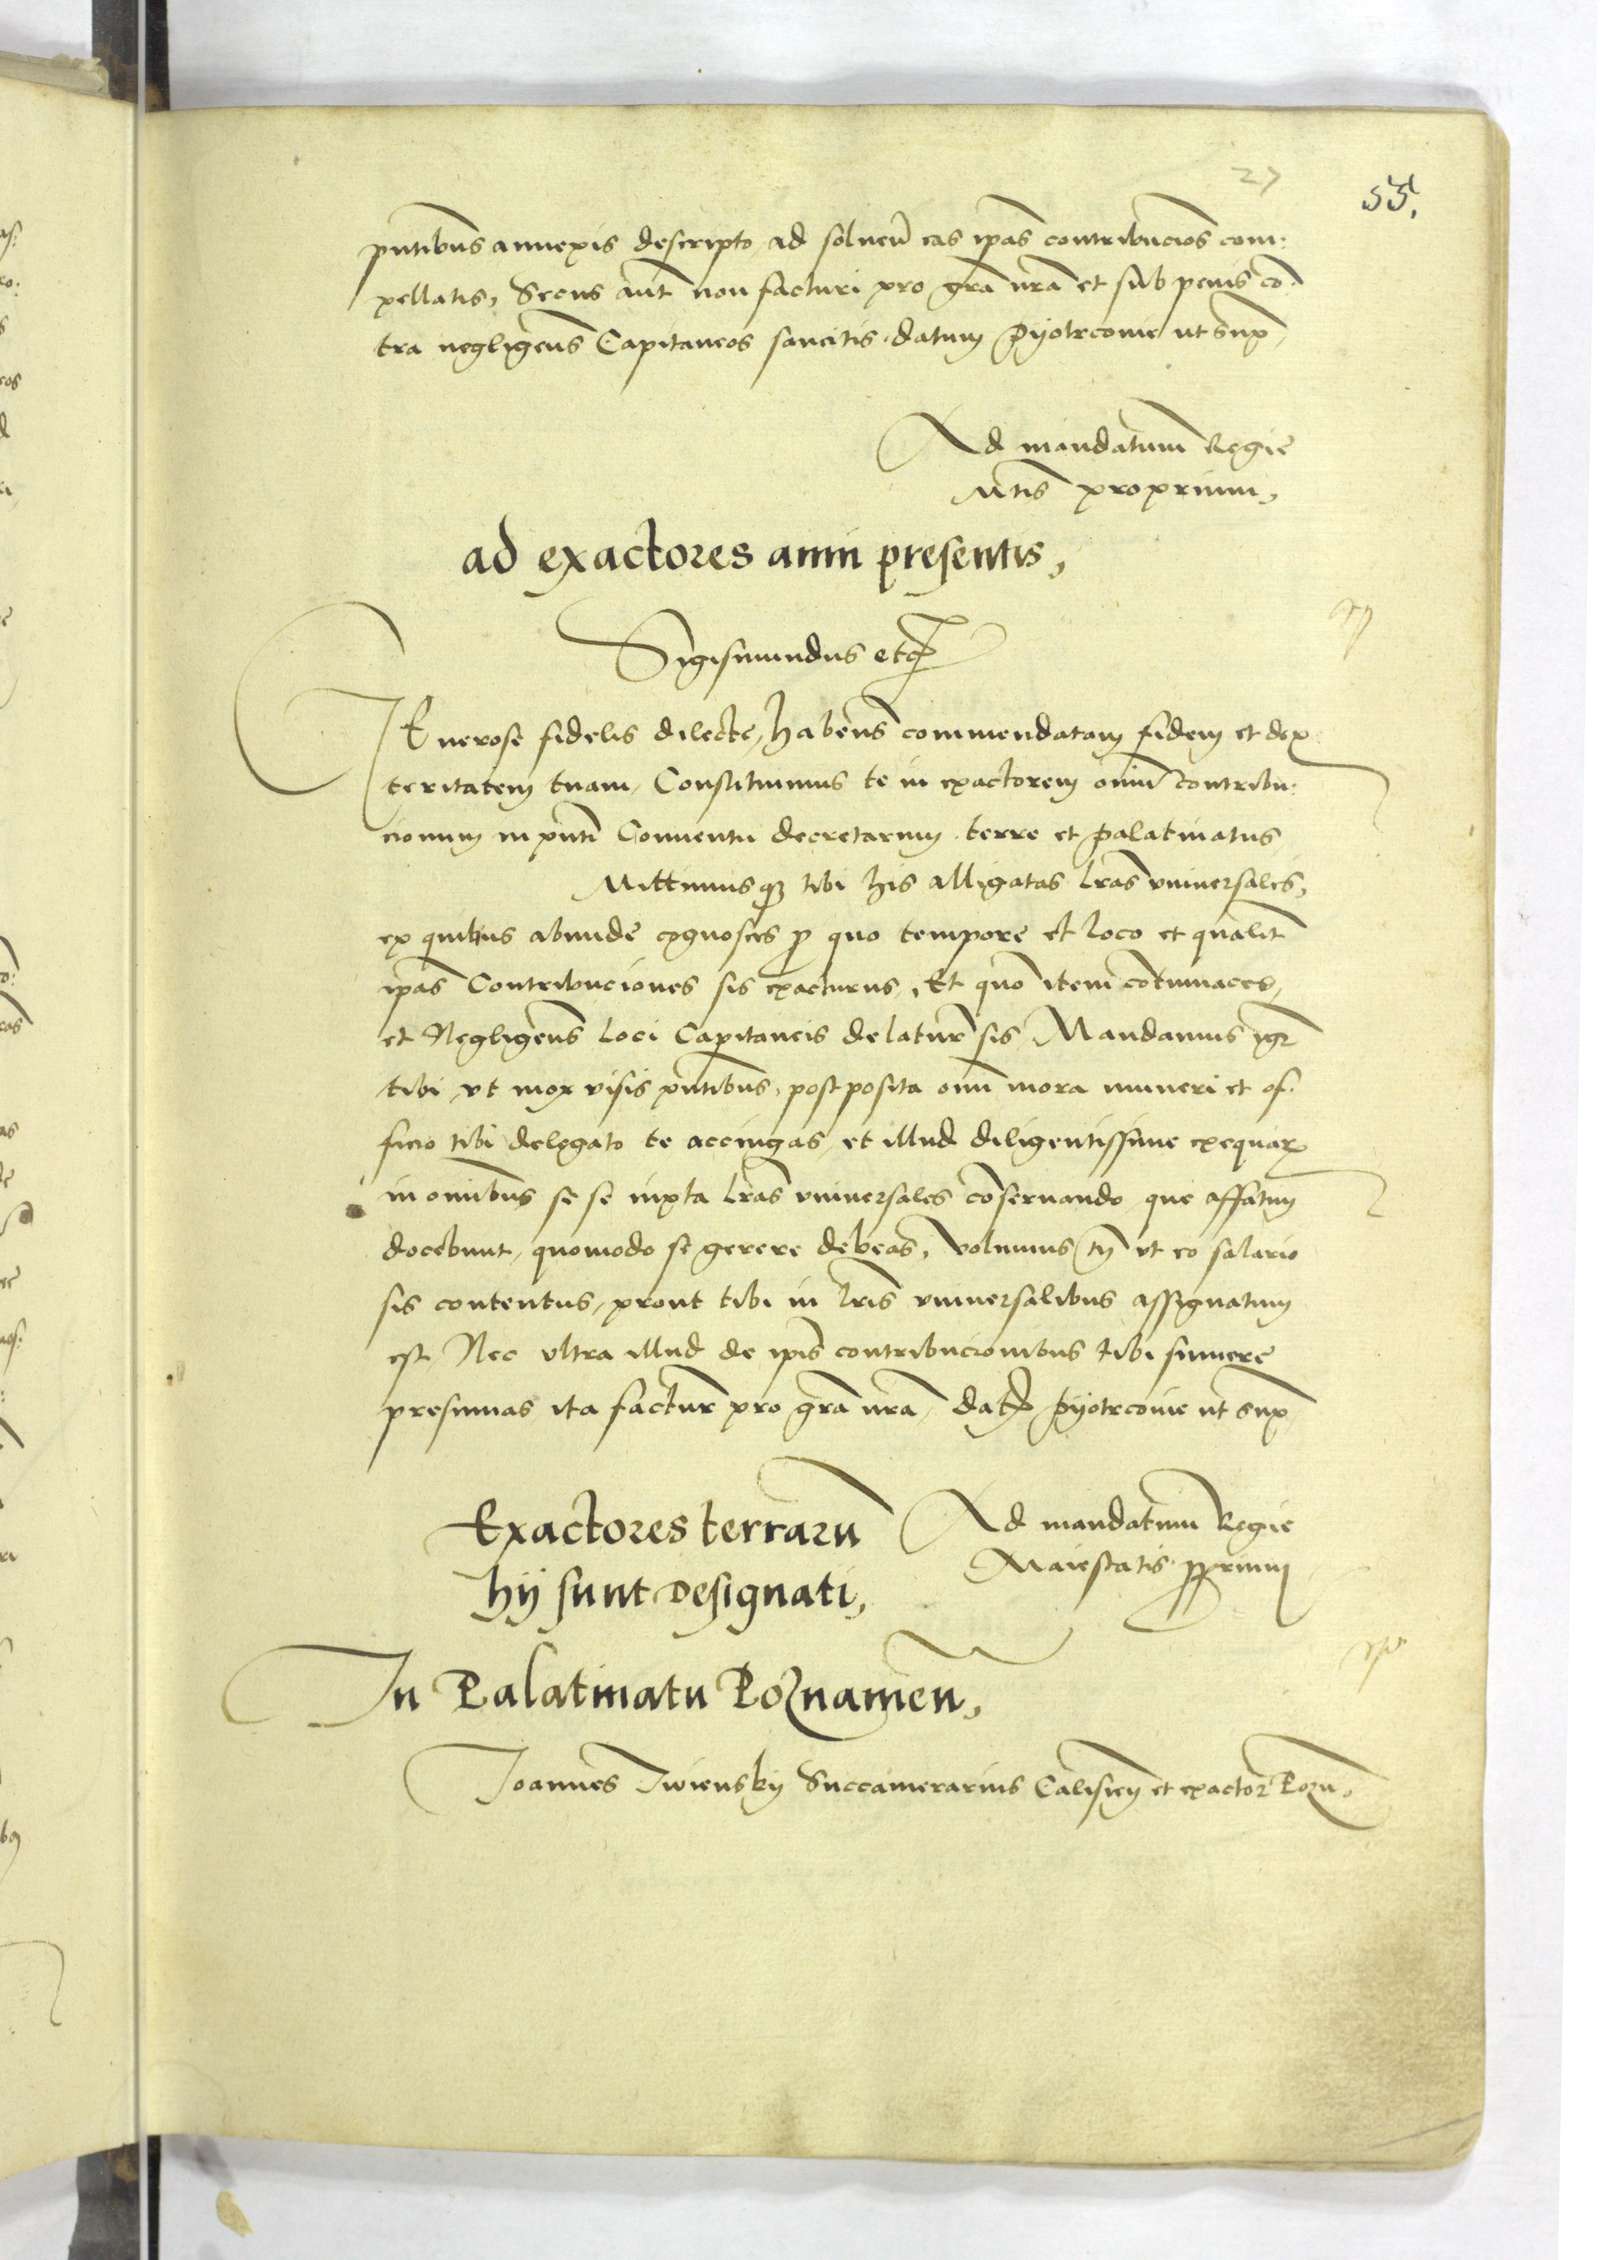 27
55.
pntibus annexis descripto ad solvend eas ipas contribucios com:
pellatis, Secus aut non facturi pro gra nra et sub penis co:
tra negligens Capitaneos sancitis. datum Pyotrcovie ut sup
Ad mandatum Regie
Mtis proprium,
ad exactores anni presentis,
Sigismundus etc
GEnerose fidelis dilecte, habens commendatam fidem et dex
teritatem tuam, Constituimus te in exactorem omni contribu:
cionum in pnti Conventu decretarum terre et palatinatus
Mittimusq tibi his alligatas lras vniversales,
ex quibus abunde cognosces p quo tempore et loco et qualit
ipas Contribuciones sis exacturus, Et quo item cotumaces,
et Negligens loci Capitaneis delatur sis Mandamus igr
tibi vt mox visis pntibus, post posita omi mora muneri et of:
ficio tibi delegato te accingas, et illud diligentissime exequar
in omibus se se iuxta lras vniversales coservando que affatim
docebunt, quomodo se gerere debeas, volumus tn vt eo salario
sis contentus, prout tibi in lris vniversalibus assignatum
est, Nec vltra illud de ipis contribucionibus tibi sumere
presumas ita factur pro gra nra, dat Pyotrcovie ut sup
Exactores terraru
hij sunt designati,
Ad mandatum Regie
Maiestatis pprium
In Palatinatu Poznamen,
Joannes Iwiensky Succamerarius Calisien et exactor Pozn,